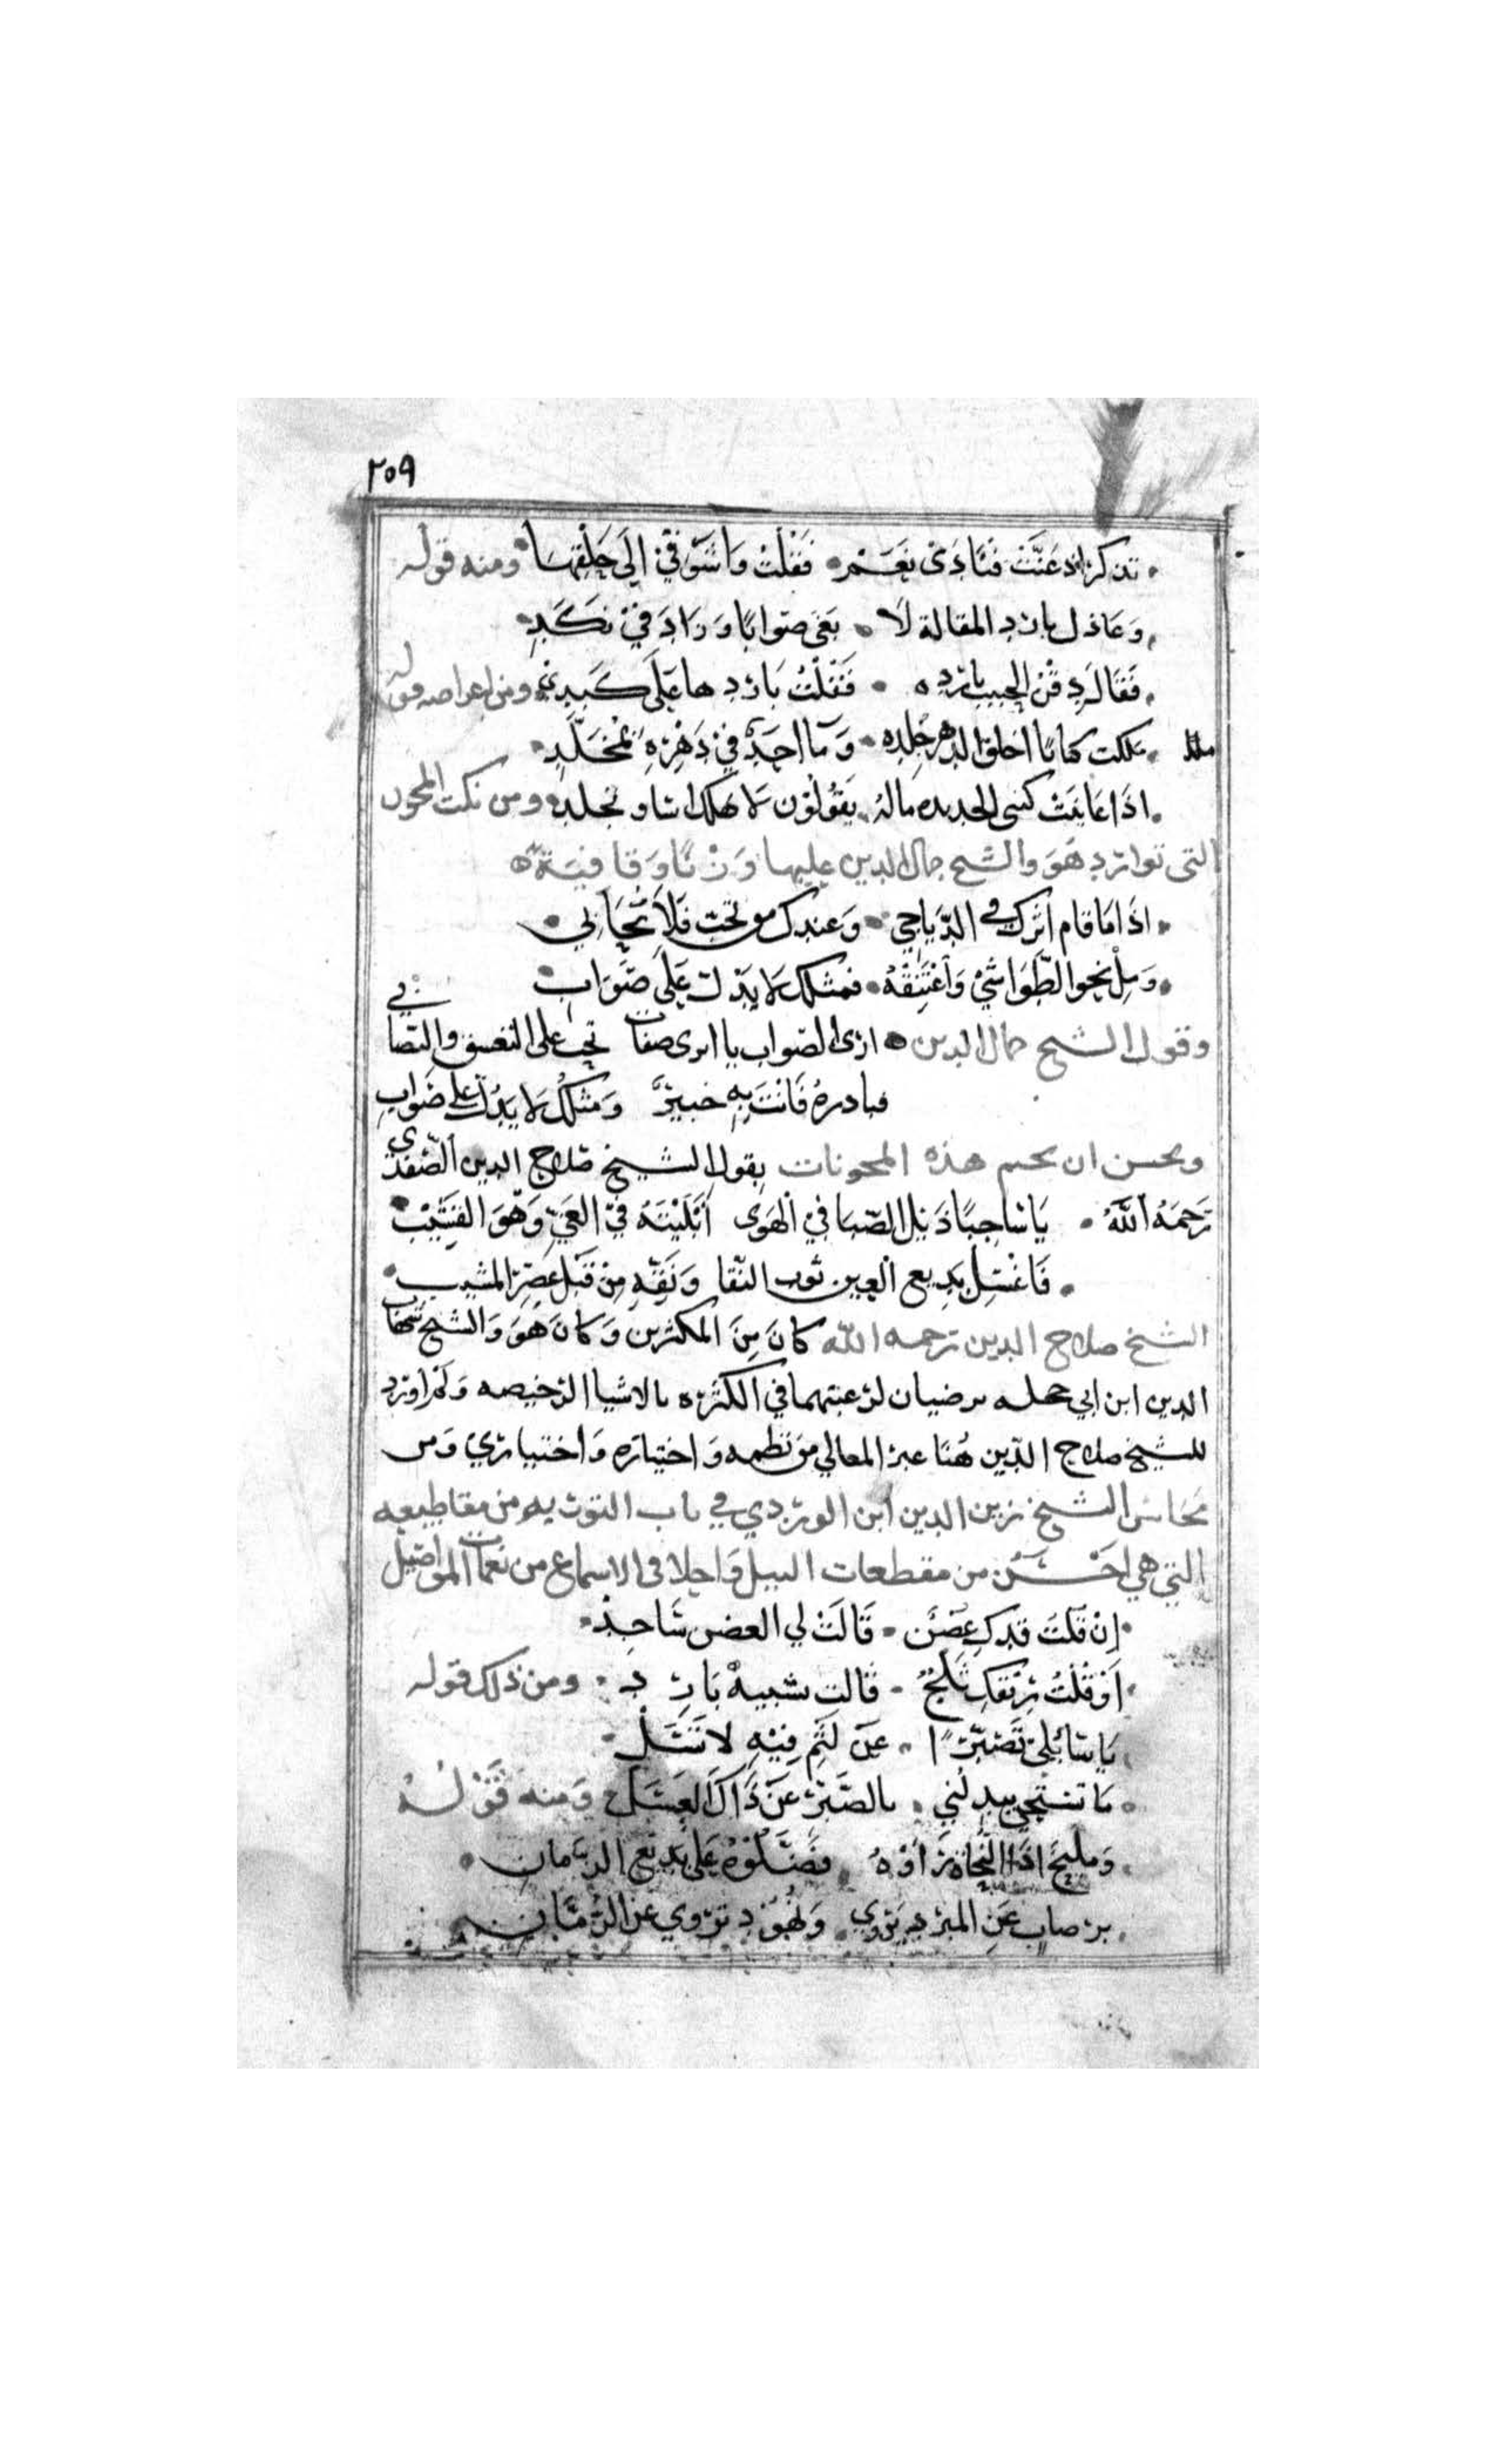 ٢٥٩
تذكر اذ غنت فنادى نعم فقلت واشوقي الى حلقها ومنه قوله
وعاذل بارد المقالة لا بغى صوابا وزاد في نكد
فقال دفن الحبيب بارده فقلت باردها على كبدي ومن اعراضه قوله
ملكت كتابا اخلق الدهر جلده وما احد في دهره بمخلد
اذا عاينت كتبي الجديده ماله يقولون لا تهلك اسا وتجلد ومن نكت المجون
التي توارد هو والشيخ جمال الدين عليها وزنا وقافية
اذا ما قام ايرك في الدياجي وعندك من تحب فلا تحابي
ومل نحو الطواشي واعتنقه فمثلك لا يدل على صواب
وقول الشيخ جمال الدين ارى الصواب يا ايري صفات تحب على التعسف والتصابي
فبادره فانت به خبير ومثلك لا يدل على صواب
ويحسن ان يختم هذه المجونات بقول الشيخ صلاح الدين الصفدي
رحمه الله يا ساحبا ذيل الصبا في الهوى ابليته في الغي وهو القشيب
فاغسل بدمع العين ثوب التقا ونقه من قبل عصر المشيب
الشيخ صلاح الدين رحمه الله كان من المكثرين وكان هو والشيخ شهاب
الدين ابن ابي حجله يرضيان لرغبتهما في الكثره بالاشيا الرخيصه ولم اورد
للشيخ صلاح الدين هنا غير المعالي من نظمه واختياره واختياري ومن
محاسن الشيخ زين الدين ابن الوردي في باب التوريه من مقاطيعه
التي هي احسن من مقطعات النيل واحلا في الاسماع من نغمات المواصيل
ان قلت قدك غصن قالت لي الغصن ساجد
او قلت ريقك ثلج قالت تشبيه بارد ومن ذلك قوله
يا سائلي تصبرا عن لثم فيه لا تسل
ما تستحي تبدلني بالصبر عن ذاك العسل ومنه قوله
ومليح اذا النحاة راوه فضلوه على بديع الزمان
برضاب عن المبرد يروي ونهود تروي عن الرماني